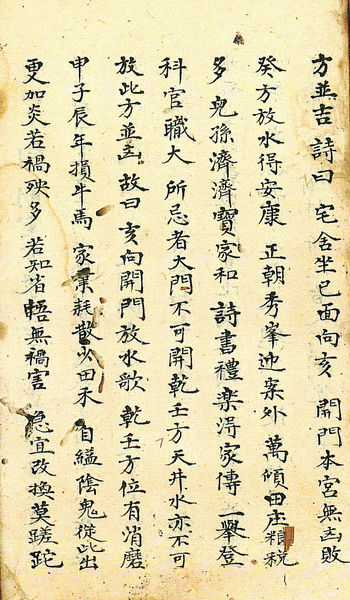 方並吉 詩曰 宅舍坐巳面向亥 開門本宮無凶敗
癸方放水得安康 正朝秀峯迎案外 萬傾田庄粮税
多 兒孫濟濟寶家和 詩書禮楽淂家傳 一舉登
科官職大 所忌者大門不可開乾壬方天井水亦不可
放此方並凶 故曰 亥向開門放水歌 乾壬方位有消磨
甲子辰年損牛馬 家業耗散少田禾 自縊陰鬼從此出
更加炎若禍殃多 若知省晤無禍害 急宜改換莫蹉跎